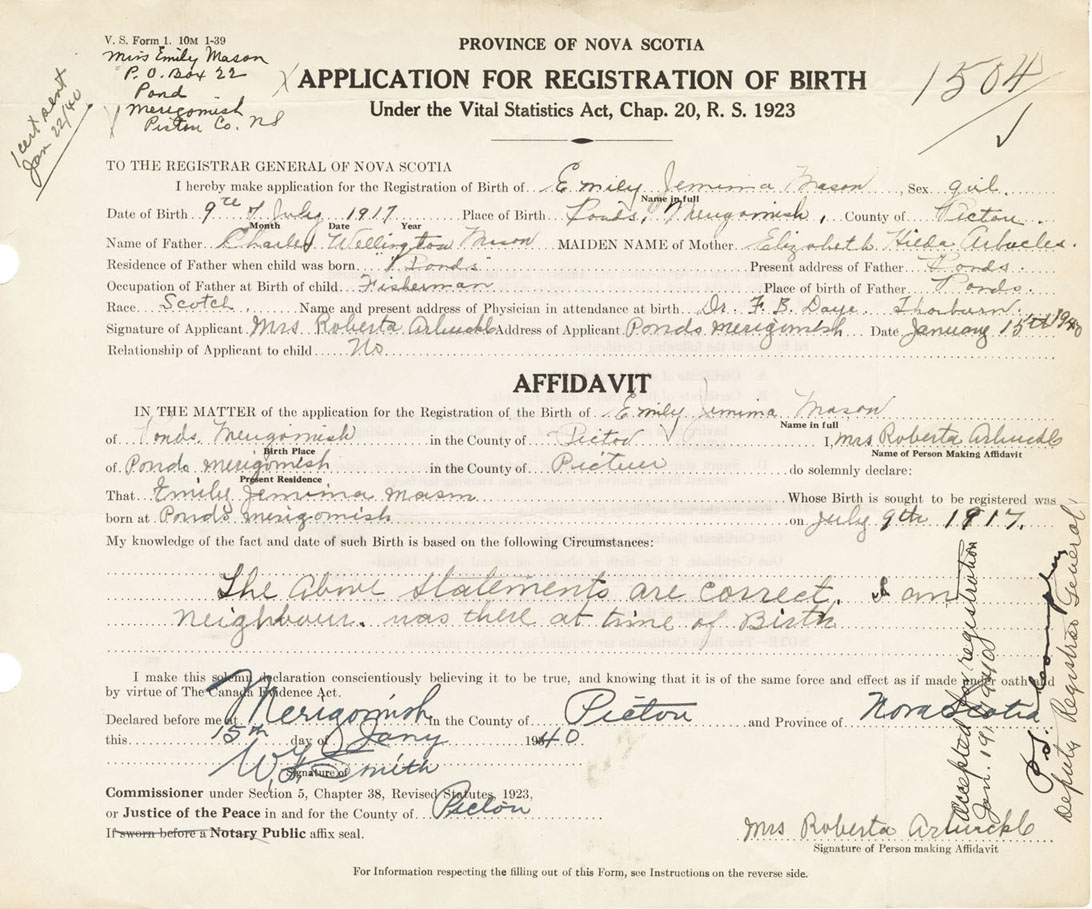 V. S. Form 1. 10M 1-39
Miss Emily Mason
P. O. Box 22
Pond
Merigomish
Pictou Co. NS
cert sent
Jan 22/40
PROVINCE OF NOVA SCOTIA
APPLICATION FOR REGISTRATION OF BIRTH
Under the Vital Statistics Act, Chap. 20, R. S. 1923
1504
TO THE REGISTRAR GENERAL OF NOVA SCOTIA
I hereby make application for the Registration of Birth of Emily Jemima Mason, Sex girl
Name in full
Date of Birth 9th of July 1917 Place of Birth Ponds, Merigomish, County of Pictou
Month Date Year
Name of Father Charles Wellington Mason MAIDEN NAME of Mother Elizabeth Hilda Arbucles.
Residence of Father when child was born Ponds Present address of Father Ponds
Occupation of Father at Birth of child Fisherman Place of birth of Father Ponds.
Race Scotch Name and present address of Physician in attendance at birth Dr. F. B. Daye Thorburn
Signature of Applicant Mrs. Roberta Arbuckle Address of Applicant Ponds Merigomish Date January 15th 1940
Relationship of Applicant to child No
AFFIDAVIT
IN THE MATTER of the application for the Registration of the Birth of Emily Jemima Mason
Name in full
of Ponds Merigomish in the County of Pictou I, Mrs Roberta Arbuckle
Birth Place Name of Person Making Affidavit
of Ponds Merigomish in the County of Pictou do solemnly declare:
Present Residence
That Emily Jemima Mason Whose Birth is sought to be registered was
born at Ponds Merigomish on July 9th 1917.
My knowledge of the fact and date of such Birth is based on the following Circumstances:
The Above statements are correct. I am
Neighbour. was there at time of Birth
I make this solemn declaration conscientiously believing it to be true, and knowing that it is of the same force and effect as if made under oath and
by virtue of The Canada Evidence Act.
Declared before me at Merigomish in the County of Pictou and Province of Nova Scotia
this 15th day of Jany 1940
Smith
Signature of
Commissioner under Section 5, Chapter 38, Revised Statutes, 1923,
or Justice of the Peace in and for the County of Pictou
If sworn before a Notary Public affix seal.
Mrs Roberta Arbuckle
Signature of Person making Affidavit
Accepted for registration
Jan. 19, 1940
Deputy Registrar General
For Information respecting the filling out of this Form, see Instructions on the reverse side.